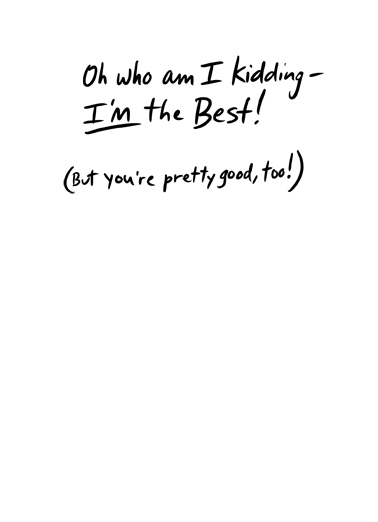 Oh who am I kidding –
I'm the Best!
(But you're pretty good, too!)